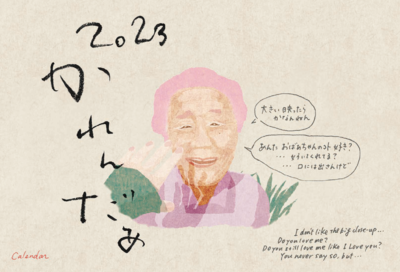 2023
かれんだあ
大きい映ったら
かなんがな
あんた おばあちゃんのコト 好き?
・・・
・・・ 口には出さんけど
I don't like the big close-up...
Do you love me?
Do you still love me like I love you?
You never say so, but...
Calendar